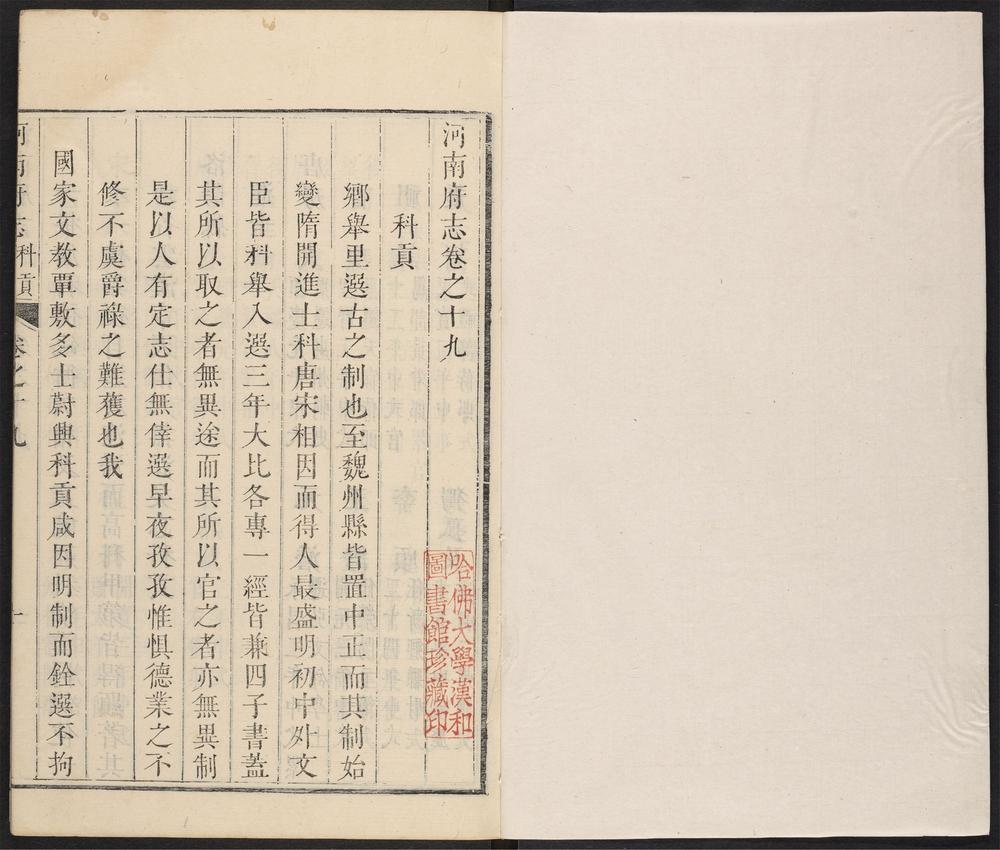 河南府志卷之十九
科貢
鄉舉里選古之制也至魏州縣皆置中正而其制始
變隋開進士科唐宋相因而得人最盛明初中外文
臣皆科舉入選三年大比各專一經皆兼四子書蓋
其所以取之者無異途而其所以官之者亦無異制
是以人有定志仕無倖選早夜孜孜惟惧德業之不
修不虞爵祿之難獲也我
國家文教覃敷多士蔚興科貢咸因明制而銓選不拘
河南府志 科貢 卷之十九
哈佛大學漢和
圖書館珍藏印